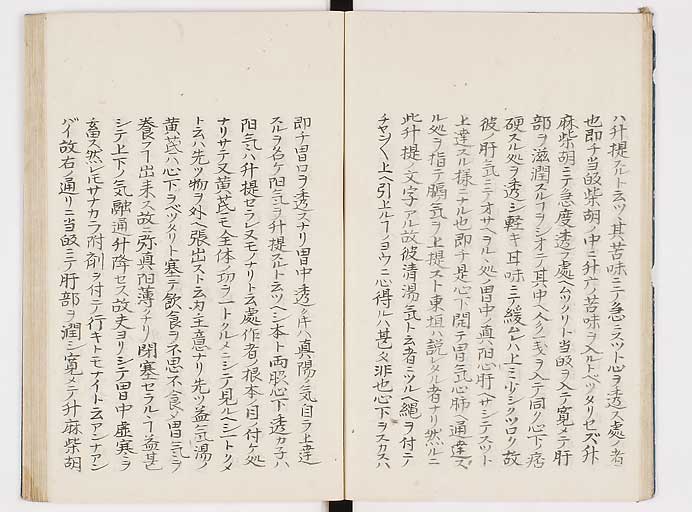 ハ升提スルト云ツ其苦味ニテ急ニスツト心ヲ透ス處ノ者
也即チ当皈柴胡ノ中ニ升广ノ苦味ヲ入ルトベツタリセズ升
麻柴胡ニテ急度透ヲ處ヘムツクリト当皈ヲ入テ寛メテ肝
部ヲ滋潤スルヲシオテ其中ヘ人参ノ戋ヲ入テ同ク心下ノ痞
硬スル処ヲ透シ軽キ耳味ニテ綾ムレハ上ミ少シクツロク故
彼ノ肝気ニテオサヘラル丶処ノ胃中ノ真阳心肝ヘサシテスツト
上達スル様ニナル也即チ是心下開テ胃気心肺ヘ通達ス
ル処ヲ指テ脾気ヲ上提スト東垣ハ説レタル者ナリ然ルニ
此升提ノ文字アル故彼清湯気ト云者ニツルヘ縄ヲ付ニテ
チヤント上ヘ引上ルヿノヨウニ心得ルハ甚文非也心下ヲスカスハ
即チ胃口ヲ透スナリ胃中透ク片ハ真陽ノ気自ラ上達
スルヲ名ケ阳気ヲ升提スルト云ツヘシ本ト両股心下透カ子ハ
阳気ハ升提セラレヌモノナリト云處作者ノ根本ノ目ノ付ケ処
ナリサテ又黄芪モ全体ノ功ヲ一トクルメニシテ見ルヘシ一トクメ
ト云ハ先ツ物ヲ外ヘ張出スト云カ主意ナリ先ツ益気湯ノ
黄芪ハ心下ヲベツタリト塞テ飲食ヲ不思不食メ胃気ラ
養フヿ出来ス故ニ弥真阳薄クナリ閉塞セラル丶ヿ益甚
シテ上下ノ気融通升降セス故夫ヨリシテ胃中虚寒ミヲ
畜ス然レモサナカラ附剤ヲ付テ行キトモアイト云アンナアン
バイ故右ノ通リニ当皈ニテ肝部ヲ潤シ寛メテ升麻柴胡